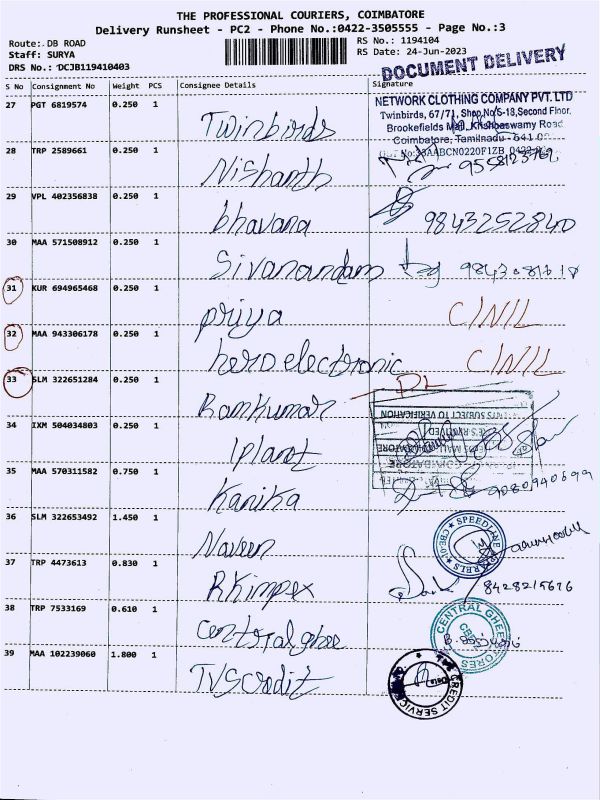 THE PROFESSIONAL COURIERS, COIMBATORE
Delivery Runsheet - PC2 - Phone No.:0422-3505555 - Page No.:3
Route: DB ROAD
Staff: SURYA
DRS No.: DCJB119410403
RS No.: 1194104
RS Date: 24-Jun-2023
DOCUMENT DELIVERY
S No Consignment No Weight PCS Consignee Details Signature
27 PGT 6819574 0.250 1 Twinbirds
NETWORK CLOTHING COMPANY PVT. LTD
Twinbirds, 67/71, Shop.No/S-18,Second Floor,
Brookefields Mall, Krishnaswamy Road
Coimbatore, Tamilnadu - 641 0
28 TRP 2589661 0.250 1 Nishanth
29 VPL 402356838 0.250 1 bhavana 9843252840
30 MAA 571508912 0.250 1 Sivanandam
31 KUR 694965468 0.250 1 priya C/N/L
32 MAA 943306178 0.250 1 hero electronic C/N/L
33 SLM 322651284 0.250 1 Ramkumar DL
SUBJECT TO VERIFICATION
34 IXM 504034803 0.250 1 Iplanet
35 MAA 570311582 0.750 1 Kanika 9080940699
36 SLM 322653492 1.450 1 Naveen
SPEEDLINE
37 TRP 4473613 0.830 1 RKimpex 8428215676
38 TRP 7533169 0.610 1 Central ghee
CENTRAL GHEE STORES
39 MAA 102239060 1.800 1 TVScredit
CREDIT SERVICE